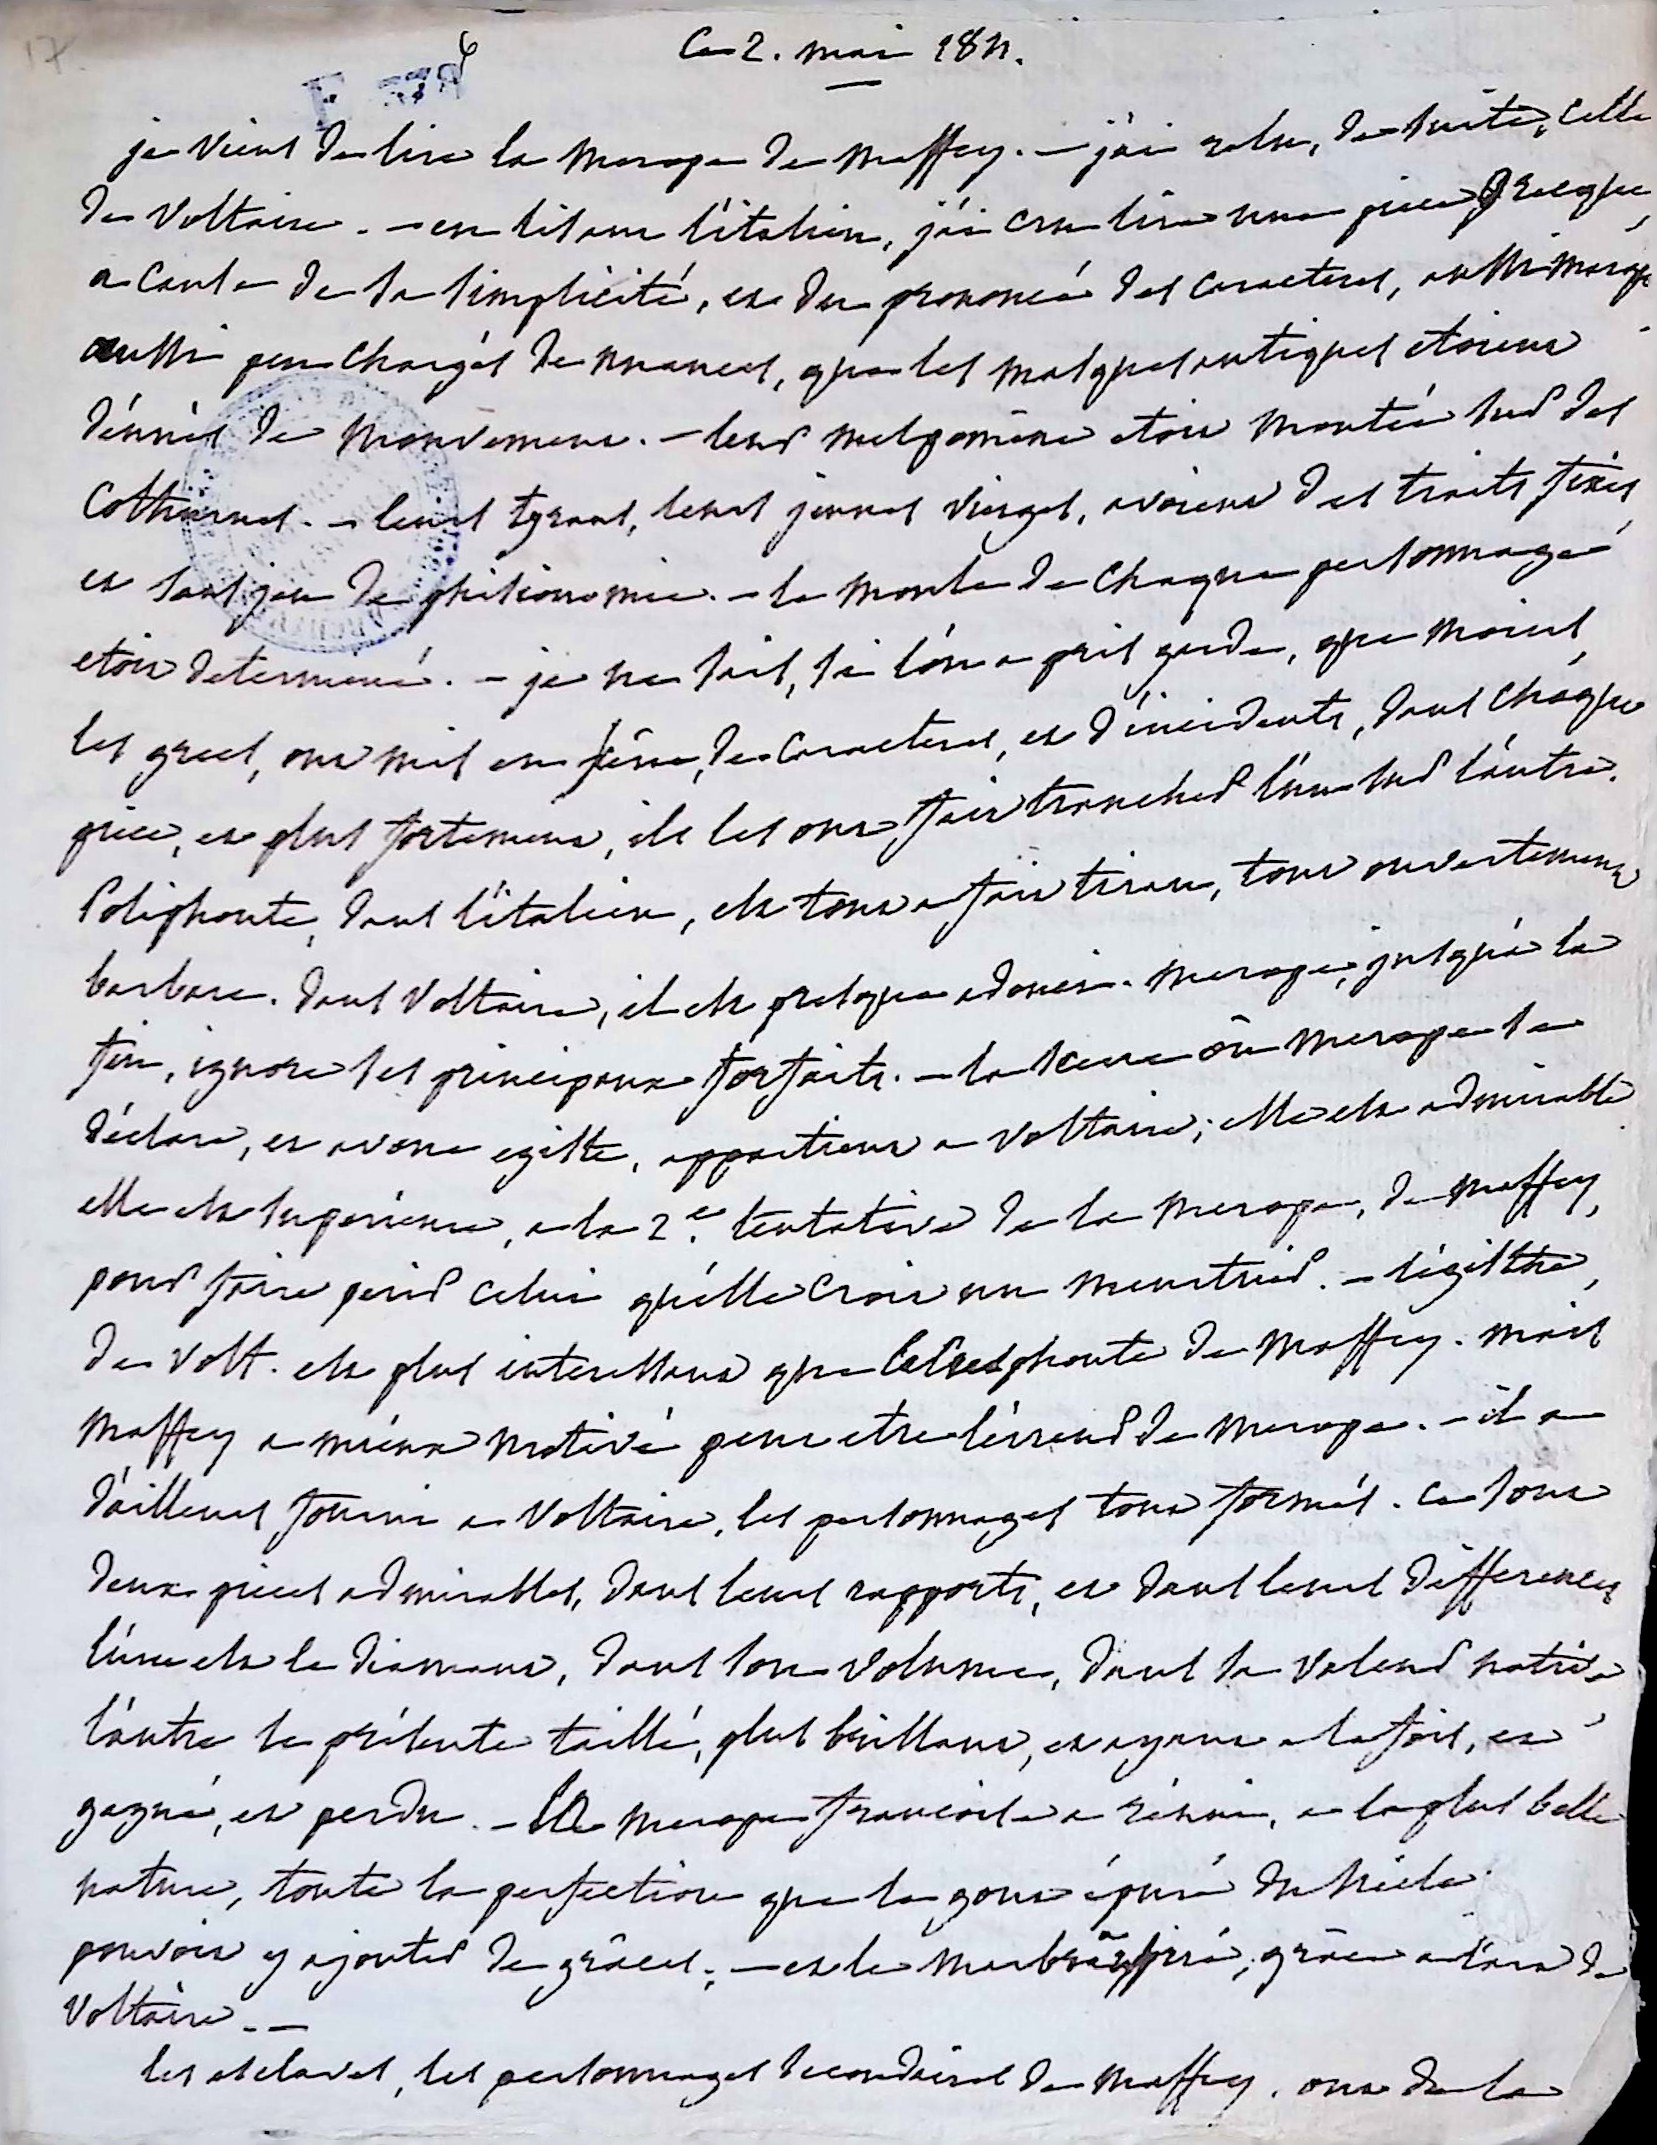 17.
6
Ce 2. mai 1811.
je viens de lire la merope de maffey. — j'ai relu, de suite, celle
de Voltaire. — en lisant l'italien, j'ai cru lire une piece grecque
a cause de sa simplicité, et du prononcé des caracteres, aussi
aussi peu chargés de nuances, que les masques antiques etoient
dénués de mouvement. — leur melpomène etoit montée sur des
cothurnes. — leurs tyrans, leurs jeunes vierges, avoient des traits fixes,
et sans jeu de phisionomie. — le moule de chaque personnage
etoit determiné. — je ne sais, si l'on a pris garde, que moins,
les grecs, ont mis en scêne, de caracteres, et d'incidents, dans chaque
piece, et plus fortement, ils les ont fait trancher l'un sur l'autre.
Poliphonte, dans l'italien, est tout a fait tiran, tout ouvertement
barbare. dans Voltaire, il est presque adouci. merope, jusqu'à la
fin, ignore ses principaux forfaits. — la scene où merope se
déclare, et avoue egiste, appartient a Voltaire; elle est admirable
elle est superieure, a la 2e. tentative de la merope, de maffey,
pour faire perir celui qu'elle croit un meurtrier. — l'égisthe,
de Volt. est plus interessant que le Cresphonte de maffey. mais
maffey a mieux motivé peut etre l'erreur de merope. — il a
d'ailleurs fourni a Voltaire, les personnages tous formés. ce sont
deux pieces admirables, dans leurs rapports, et dans leurs differences
l'une est le diamant, dans son volume, dans sa valeur native
l'autre le présente taillé, plus brillant, et ayant a la fois, et
gagné, et perdu. — la merope françoise a réuni, a la plus belle
nature, toute la perfection que le gout épuré du siècle
pouvoit y ajouter de grâces; — et le marbre a respiré, grâce a l'art de
Voltaire. —
les esclaves, les personnages secondaires de maffey, ont de la